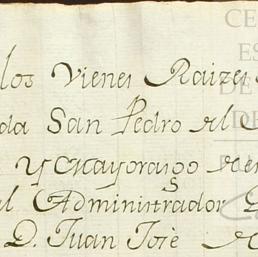 los Vienes Raizes
da San Pedro del
y Mayorasgo de
el Administrador
D. Juan Jose de
CE
ES
DE
DE